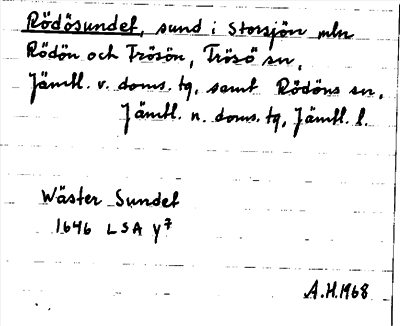 Rödösundet, sund i Storsjön mln
Rödön och Frösön, Frösö sn,
Jämtl. v. doms. tg, samt Rödöns sn,
Jämtl. n. doms. tg, Jämtl. l.
Wäster Sundet
1646 LSA y7
A.H. 1968